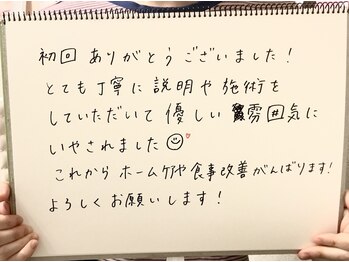 初回 ありがとうございました!
とても丁寧に説明や施術を
していただいて 優しい 雰囲気に
いやされました
これから ホームケアや食事改善がんばります!
よろしくお願いします!